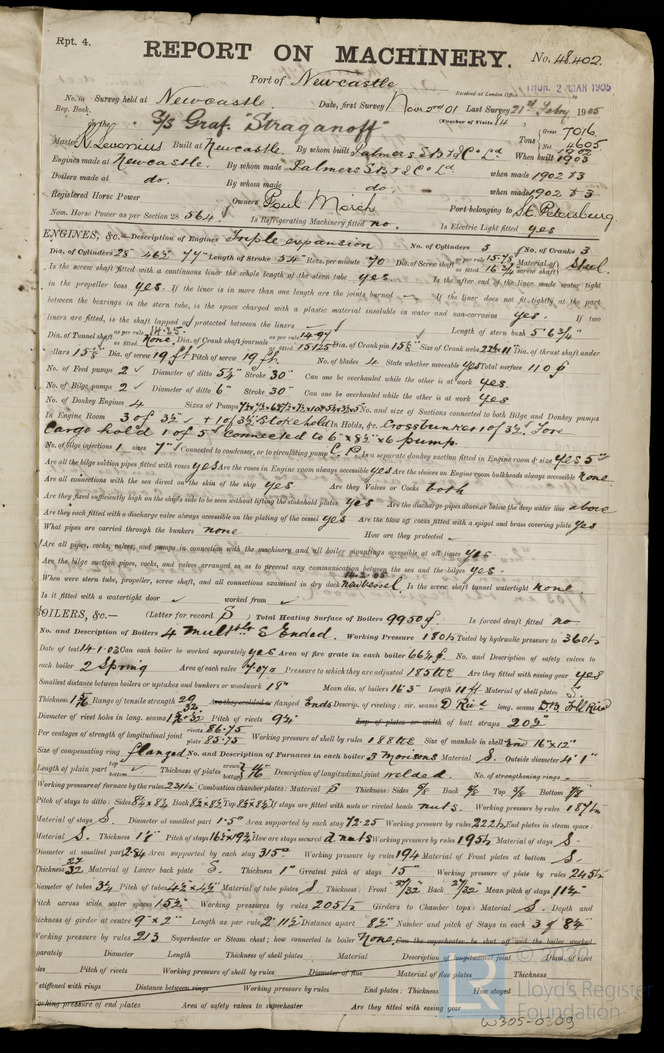 Rpt. 4.
REPORT ON MACHINERY. No. 48402.
Port of Newcastle
Received at London Office THUR. 2 MAR 1905
No. in Survey held at Newcastle. Date, first Survey Nov 2nd 01 Last Survey 21st Febry 1905
Reg. Book. (Number of Visits 4)
on the S/S Graf "Straganoff" Tons Gross 7016 Net 4605
Master Built at Newcastle. By whom built Palmers S.B. & I Co Ld When built 1903
Engines made at Newcastle. By whom made Palmers S.B. & I Co Ld. when made 1902 & 3
Boilers made at do. By whom made do. when made 1902 & 3
Registered Horse Power Owners Paul Port belonging to St Petersburg
Nom. Horse Power as per Section 28 564 Is Refrigerating Machinery fitted no. Is Electric Light fitted yes
ENGINES, &c.—Description of Engines Triple expansion No. of Cylinders 3 No. of Cranks 3
Dia. of Cylinders 28" 46½" 77" Length of Stroke 54" Revs. per minute 70 Dia. of Screw shaft as per rule 15.78 as fitted 16¾ Material of screw shaft Steel.
Is the screw shaft fitted with a continuous liner the whole length of the stern tube yes. Is the after end of the liner made water tight
in the propeller boss yes. If the liner is in more than one length are the joints burned – If the liner does not fit tightly at the part
between the bearings in the stern tube, is the space charged with a plastic material insoluble in water and non-corrosive yes. If two
liners are fitted, is the shaft lapped or protected between the liners Length of stern bush 5' 6¾"
Dia. of Tunnel shaft as per rule 14.25 as fitted None. Dia. of Crank shaft journals as per rule 14.97 as fitted 15.125 Dia. of Crank pin 15⅛" Size of Crank webs Dia. of thrust shaft under
collars 15⅛" Dia. of screw 19 ft Pitch of screw 19 ft. No. of blades 4 State whether moveable yes Total surface 110
No. of Feed pumps 2 Diameter of ditto 5¼" Stroke 30" Can one be overhauled while the other is at work yes.
No. of Bilge pumps 2 Diameter of ditto 6" Stroke 30" Can one be overhauled while the other is at work yes
No. of Donkey Engines 4 Sizes of Pumps No. and size of Suctions connected to both Bilge and Donkey pumps
In Engine Room 3 of 3½ + 1 of 3½ Stokehold In Holds, &c. Crossbunker 1 of 3½. Fore
Cargo hold 1 of 5 connected to 6" x 8½" x 6 pump.
No. of bilge injections 1 sizes 7" Connected to condenser, or to circulating pump C.P. Is a separate donkey suction fitted in Engine room & size yes 5"
Are all the bilge suction pipes fitted with roses yes Are the roses in Engine room always accessible yes Are the sluices on Engine room bulkheads always accessible none
Are all connections with the sea direct on the skin of the ship yes Are they Valves or Cocks both
Are they fixed sufficiently high on the ship's side to be seen without lifting the stokehold plates yes Are the discharge pipes above or below the deep water line above
Are they each fitted with a discharge valve always accessible on the plating of the vessel yes Are the blow off cocks fitted with a spigot and brass covering plate yes
What pipes are carried through the bunkers none How are they protected –
Are all pipes, cocks, valves, and pumps in connection with the machinery and all boiler mountings accessible at all times yes
Are the bilge suction pipes, cocks, and valves arranged so as to prevent any communication between the sea and the bilges yes.
When were stern tube, propeller, screw shaft, and all connections examined in dry dock 14.2.05 new vessel Is the screw shaft tunnel watertight none.
Is it fitted with a watertight door worked from
BOILERS, &c.— (Letter for record S) Total Heating Surface of Boilers 9950 Is forced draft fitted no
No. and Description of Boilers 4 S. Ended. Working Pressure 180 lb Tested by hydraulic pressure to 360 lb
Date of test 14.1.03 Can each boiler be worked separately yes Area of fire grate in each boiler 66½ No. and Description of safety valves to
each boiler 2 Spring Area of each valve 7.07 Pressure to which they are adjusted 185 lb Are they fitted with easing gear yes
Smallest distance between boilers or uptakes and bunkers or woodwork 18" Mean dia. of boilers 16'3" Length 11 ft Material of shell plates S.
Thickness Range of tensile strength 29 32 Are they welded or flanged Ends Descrip. of riveting: cir. seams D Riv'd long. seams
Diameter of rivet holes in long. seams Pitch of rivets 9¾" Lap of plates or width of butt straps 20½"
Per centages of strength of longitudinal joint rivets 86.75 plate 85.75 Working pressure of shell by rules 188 lb Size of manhole in shell End 16" x 12"
Size of compensating ring flanged No. and Description of Furnaces in each boiler 3 Morisons Material S. Outside diameter 4' 1"
Length of plain part top bottom Thickness of plates crown bottom Description of longitudinal joint welded. No. of strengthening rings –
Working pressure of furnace by the rules Combustion chamber plates: Material S Thickness: Sides Back Top Bottom ⅞
Pitch of stays to ditto: Sides Back Top If stays are fitted with nuts or riveted heads nuts. Working pressure by rules 187 lb
Material of stays S. Diameter at smallest part 1.5" Area supported by each stay 72.25 Working pressure by rules 222 lb End plates in steam space:
Material S. Thickness 1⅛" Pitch of stays How are stays secured d nuts Working pressure by rules 195 lb Material of stays S.
Diameter at smallest part 2.84 Area supported by each stay 315" Working pressure by rules 194 Material of Front plates at bottom S.
Thickness 27/32 Material of Lower back plate S. Thickness 1" Greatest pitch of stays 15" Working pressure of plate by rules 245 lb
Diameter of tubes 3¼ Pitch of tubes 4½ x 4½" Material of tube plates S. Thickness: Front 27/32" Back 27/32" Mean pitch of stays
Pitch across wide water spaces 15½" Working pressures by rules 205 lb Girders to Chamber tops: Material S. Depth and
thickness of girder at centre 9" x 2" Length as per rule 2'.11½" Distance apart 8½" Number and pitch of Stays in each 3 of 8¾"
Working pressure by rules 213 Superheater or Steam chest; how connected to boiler None. Can the superheater be shut off and the boiler worked
separately Diameter Length Thickness of shell plates Material Description of longitudinal joint Diam. of rivet
holes Pitch of rivets Working pressure of shell by rules Diameter of flue Material of flue plates Thickness
If stiffened with rings Distance between rings Working pressure by rules End plates: Thickness How stayed
Working pressure of end plates Area of safety valves to superheater Are they fitted with easing gear
© 2020
LR Lloyd's Register
Foundation
W305-0309